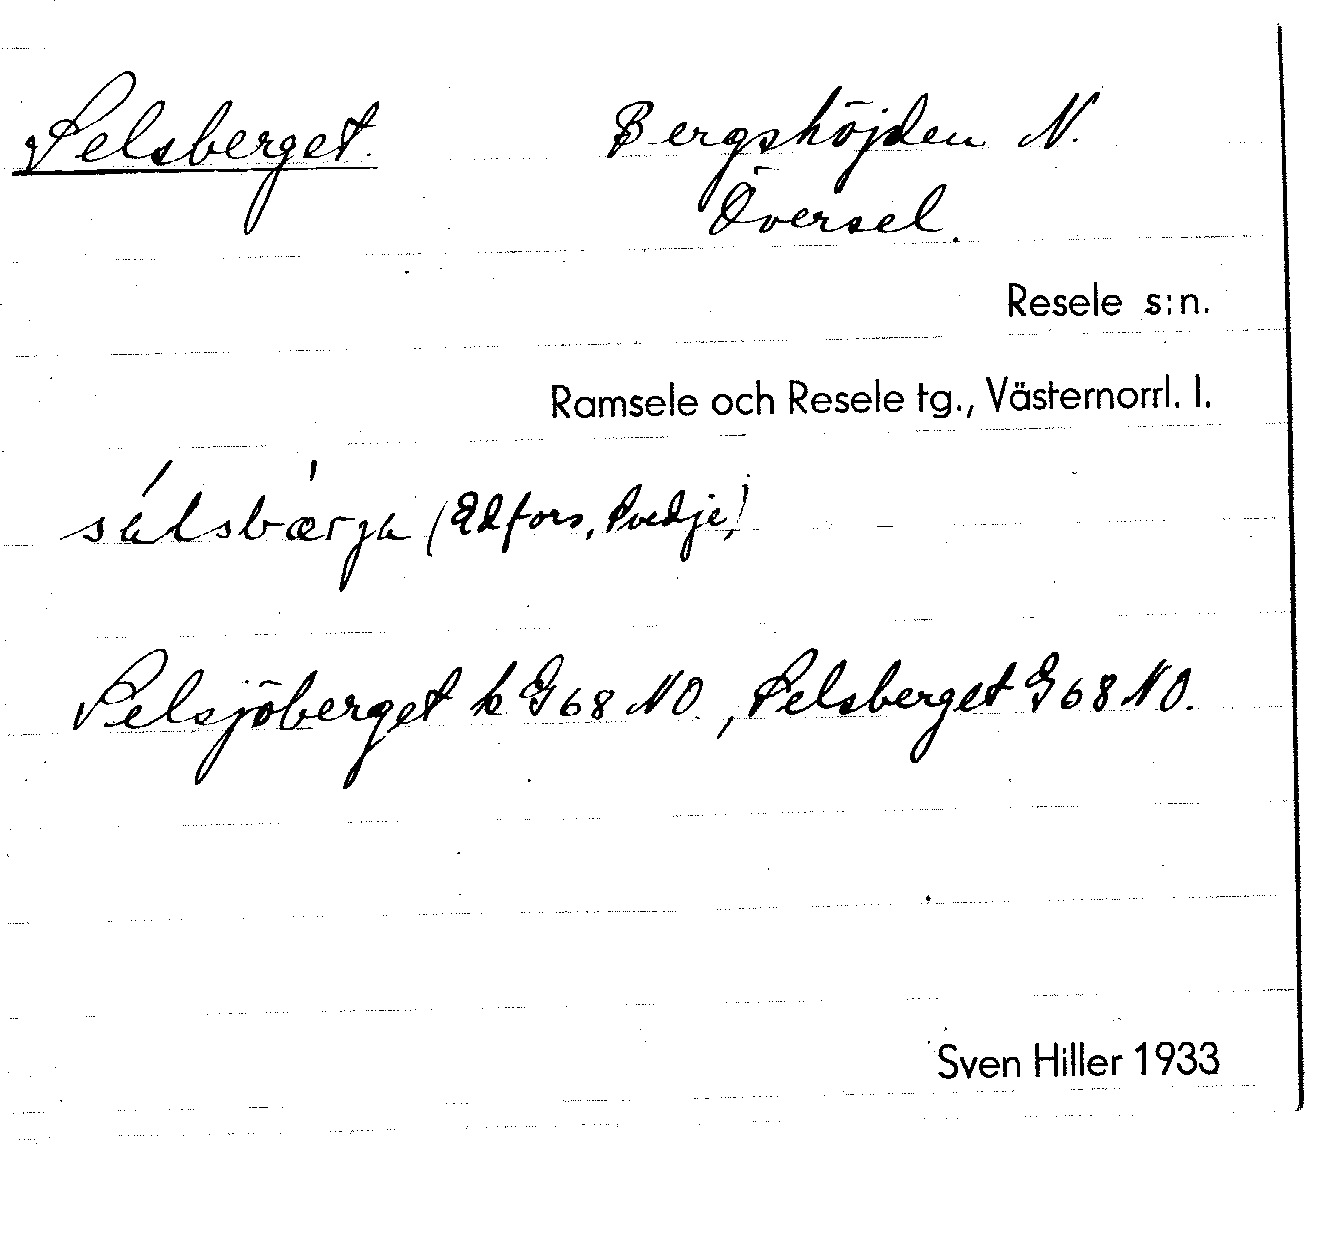 Selsberget. Bergshöjden N.
Översel.
Resele s:n.
Ramsele och Resele tg., Västernorrl. l.
(Edfors, Svedje)
Selsjöberget k G 68 NO., Selsberget G 68 NO.
Sven Hiller 1933